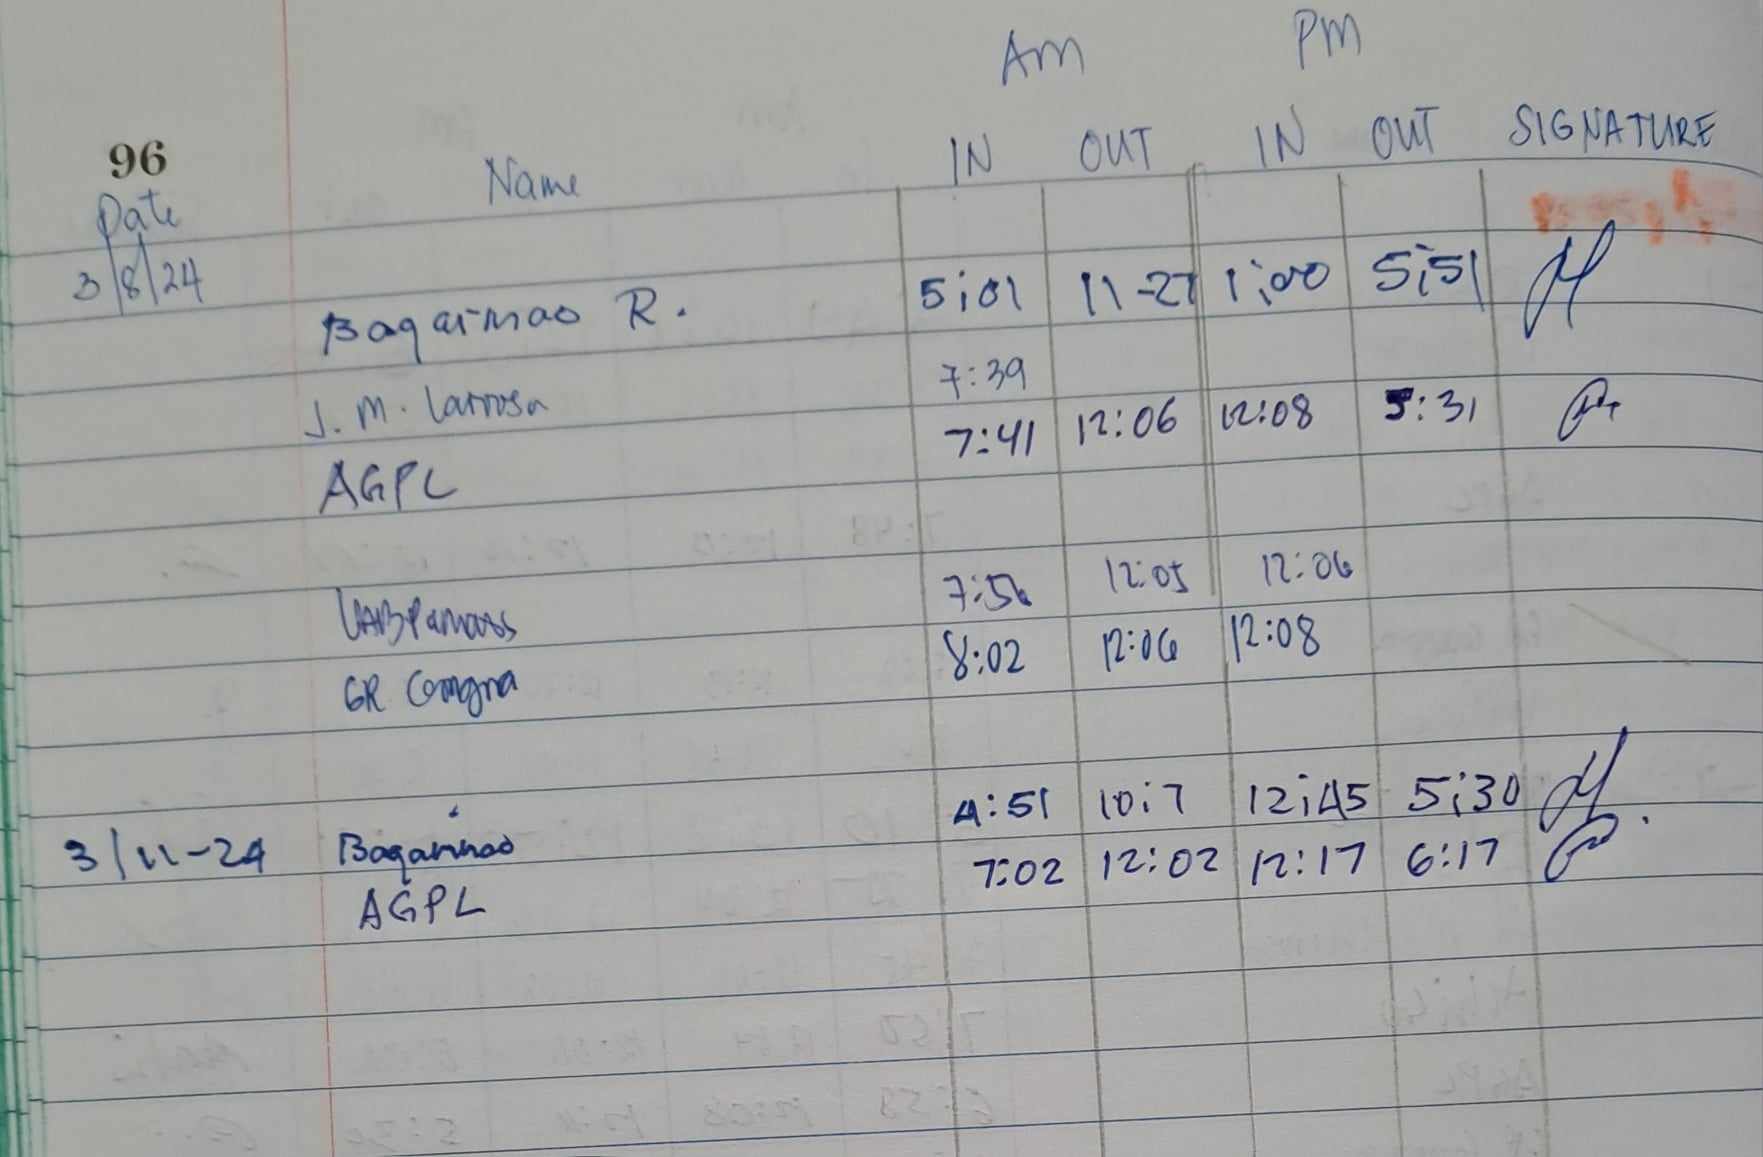 Am PM
96
Date Name IN OUT IN OUT SIGNATURE
3/8/24
Bagarinao R. 5:01 11-27 1:00 5:51
J. M. Larrosa 7:39
AGPL 7:41 12:06 12:08 5:31
7:56 12:05 12:06
GR 8:02 12:06 12:08
3/11-24 Bagarinao 4:51 10:7 12:45 5:30
AGPL 7:02 12:02 12:17 6:17